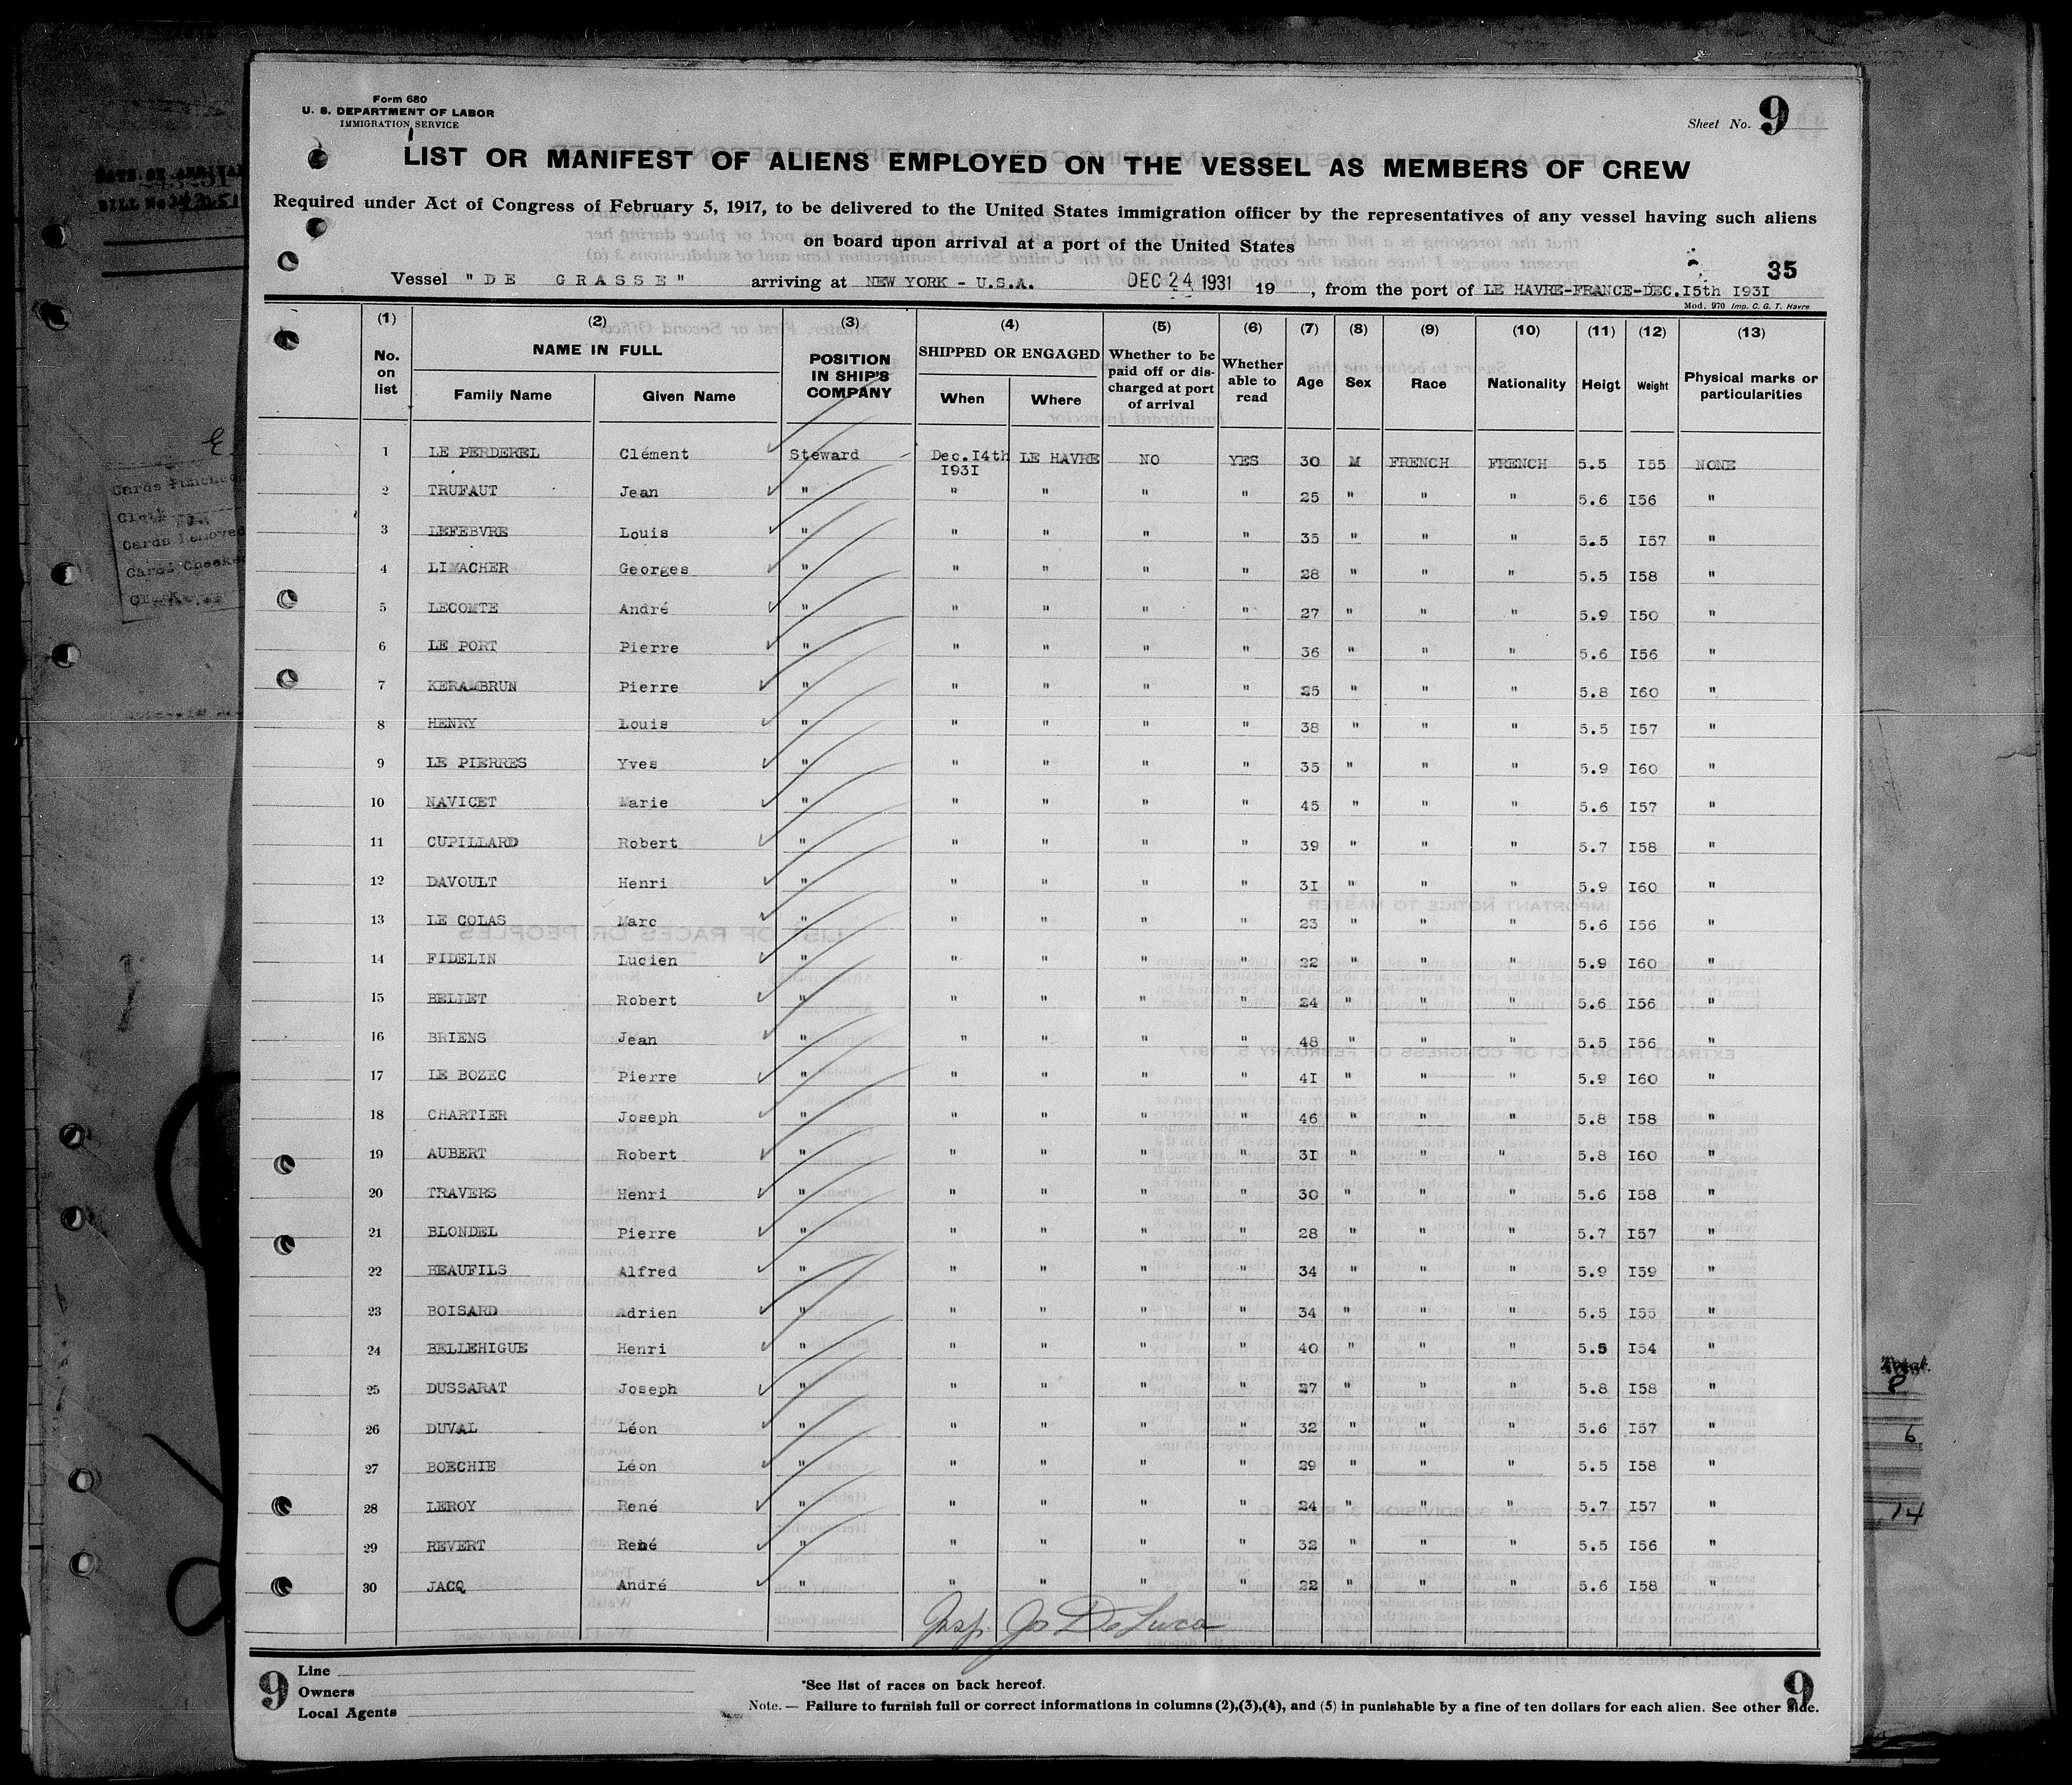 Form 680
U. S. DEPARTMENT OF LABOR
IMMIGRATION SERVICE
Sheet No. 9
LIST OR MANIFEST OF ALIENS EMPLOYED ON THE VESSEL AS MEMBERS OF CREW
Required under Act of Congress of February 5, 1917, to be delivered to the United States immigration officer by the representatives of any vessel having such aliens
on board upon arrival at a port of the United States
35
Vessel "DE GRASSE" arriving at NEW YORK - U.S.A. DEC 24 1931 19 , from the port of LE HAVRE-FRANCE-DEC.I5th I93I
Mod. 970 Imp. C. G. T. Havre
(1) (2) (3) (4) (5) (6) (7) (8) (9) (10) (11) (12) (13)
No. on list NAME IN FULL Family Name Given Name POSITION IN SHIP'S COMPANY SHIPPED OR ENGAGED When Where Whether to be paid off or discharged at port of arrival Whether able to read Age Sex Race Nationality Heigt Weight Physical marks or particularities
1 LE PERDEREL Clément Steward Dec.I4th I93I LE HAVRE NO YES 30 M FRENCH FRENCH 5.5 I55 NONE
2 TRUFAUT Jean " " " " " 25 " " " 5.6 I56 "
3 LEFEBVRE Louis " " " " " 35 " " " 5.5 I57 "
4 LIMACHER Georges " " " " " 28 " " " 5.5 I58 "
5 LECOMTE André " " " " " 27 " " " 5.9 I50 "
6 LE PORT Pierre " " " " " 36 " " " 5.6 I56 "
7 KERAMBRUN Pierre " " " " " 25 " " " 5.8 I60 "
8 HENRY Louis " " " " " 38 " " " 5.5 I57 "
9 LE PIERRES Yves " " " " " 35 " " " 5.9 I60 "
10 NAVICET Marie " " " " " 45 " " " 5.6 I57 "
11 CUPILLARD Robert " " " " " 39 " " " 5.7 I58 "
12 DAVOULT Henri " " " " " 3I " " " 5.9 I60 "
13 LE COLAS Marc " " " " " 23 " " " 5.6 I56 "
14 FIDELIN Lucien " " " " " 22 " " " 5.9 I60 "
15 BELLET Robert " " " " " 24 " " " 5.6 I56 "
16 BRIENS Jean " " " " " 48 " " " 5.5 I56 "
17 LE BOZEC Pierre " " " " " 4I " " " 5.9 I60 "
18 CHARTIER Joseph " " " " " 46 " " " 5.8 I58 "
19 AUBERT Robert " " " " " 3I " " " 5.8 I60 "
20 TRAVERS Henri " " " " " 30 " " " 5.6 I58 "
21 BLONDEL Pierre " " " " " 28 " " " 5.7 I57 "
22 BEAUFILS Alfred " " " " " 34 " " " 5.9 I59 "
23 BOISARD Adrien " " " " " 34 " " " 5.5 I55 "
24 BELLEHIGUE Henri " " " " " 40 " " " 5.5 I54 "
25 DUSSARAT Joseph " " " " " 27 " " " 5.8 I58 "
26 DUVAL Léon " " " " " 32 " " " 5.6 I57 "
27 BOECHIE Léon " " " " " 29 " " " 5.5 I58 "
28 LEROY René " " " " " 24 " " " 5.7 I57 "
29 REVERT René " " " " " 32 " " " 5.5 I56 "
30 JACQ André " " " " " 22 " " " 5.6 I58 "
Insp. Jos De Luca
9 Line
Owners
Local Agents
*See list of races on back hereof.
Note. — Failure to furnish full or correct informations in columns (2),(3),(4), and (5) in punishable by a fine of ten dollars for each alien. See other side.
9
Total.
8
6
14